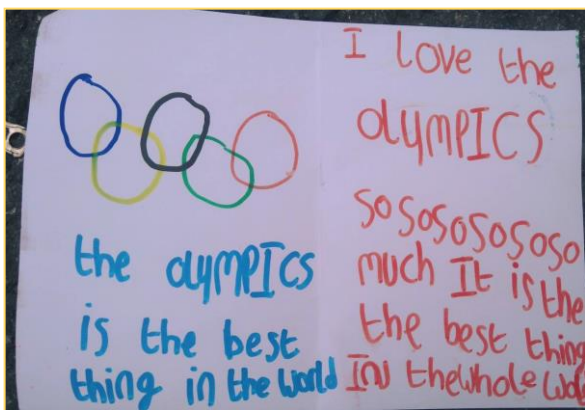 the OlyMPICS
is the best
thing in the World
I love the
OlyMPICS
so sososososo
much It is the
the best thing
IN thewhole